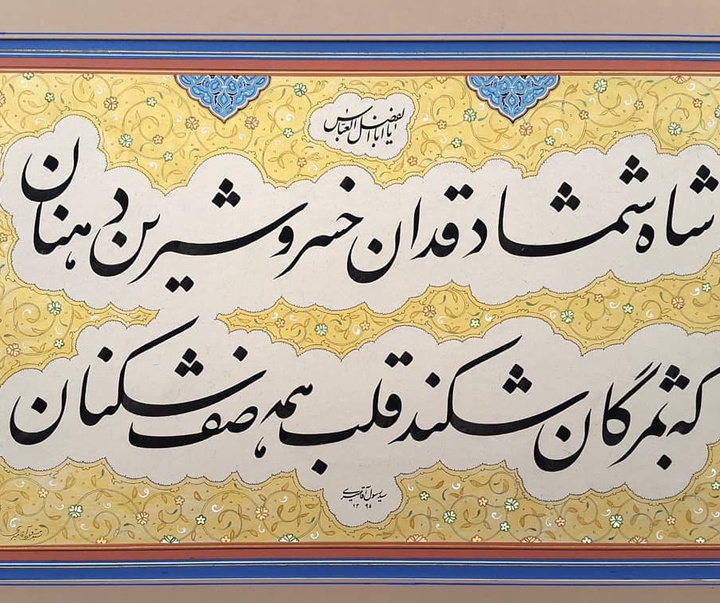 یا اباالفضل العباس
شاه شمشاد قدان خسرو شیرین دهنان
که بمژگان شکند قلب همه صف شکنان
۱۳۹۵